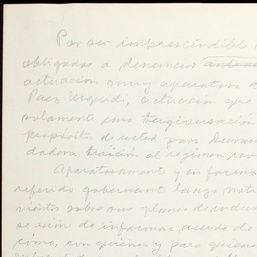 Por ser imprescindible
obligados a denunciar
actuación muy aparatosa
Paez Urquidi, actuación que
solamente una tergiversación
propósitos de usted para Duran
dadora traición al régimen rev
Aparatosamente y en forma
referido gobernant lanzo
vientos sobre sus planes de indus
se sirva de informar acerca de
cómo, con quiénes y para quienes